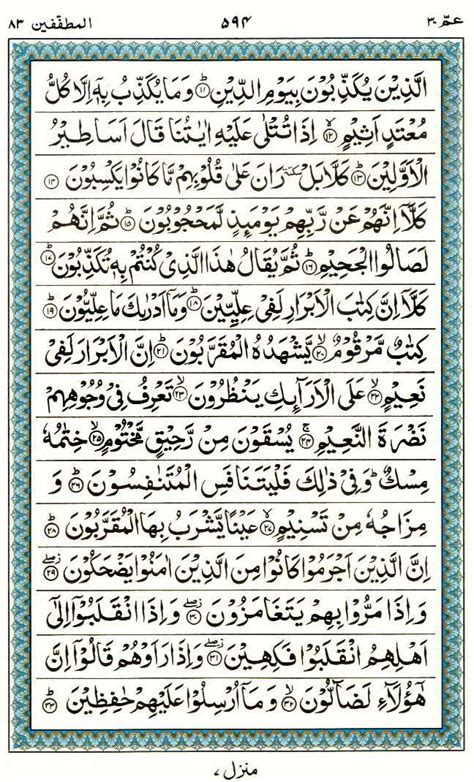 عمّ ٣٠ ۵۹۴ المطفّفين ٨٣
الَّذِيۡنَ يُكَذِّبُوۡنَ بِيَوۡمِ الدِّيۡنِ ۝۱۱ وَمَا يُكَذِّبُ بِهٖۤ اِلَّا كُلُّ
مُعۡتَدٍ اَثِيۡمٍ ۝۱۲ اِذَا تُتۡلٰى عَلَيۡهِ اٰيٰتُنَا قَالَ اَسَاطِيۡرُ
الۡاَوَّلِيۡنَ ۝۱۳ كَلَّا بَلۡ سكتة رَانَ عَلٰى قُلُوۡبِهِمۡ مَّا كَانُوۡا يَكۡسِبُوۡنَ ۝۱۴
كَلَّاۤ اِنَّهُمۡ عَنۡ رَّبِّهِمۡ يَوۡمَٮِٕذٍ لَّمَحۡجُوۡبُوۡنَ ۝۱۵ ثُمَّ اِنَّهُمۡ
لَصَالُوا الۡجَحِيۡمِ ۝۱۶ ثُمَّ يُقَالُ هٰذَا الَّذِىۡ كُنۡتُمۡ بِهٖ تُكَذِّبُوۡنَ ۝۱۷
كَلَّاۤ اِنَّ كِتٰبَ الۡاَبۡرَارِ لَفِىۡ عِلِّيِّيۡنَ ۝۱۸ وَمَاۤ اَدۡرٰٮكَ مَا عِلِّيُّوۡنَ ۝۱۹
كِتٰبٌ مَّرۡقُوۡمٌ ۝۲۰ يَّشۡهَدُهُ الۡمُقَرَّبُوۡنَ ۝۲۱ اِنَّ الۡاَبۡرَارَ لَفِىۡ
نَعِيۡمٍ ۝۲۲ عَلَى الۡاَرَآٮِٕكِ يَنۡظُرُوۡنَ ۝۲۳ تَعۡرِفُ فِىۡ وُجُوۡهِهِمۡ
نَضۡرَةَ النَّعِيۡمِ ۝۲۴ يُسۡقَوۡنَ مِنۡ رَّحِيۡقٍ مَّخۡتُوۡمٍ ۝۲۵ خِتٰمُهٗ
مِسۡكٌ ؕ وَفِىۡ ذٰلِكَ فَلۡيَتَنَافَسِ الۡمُتَنٰفِسُوۡنَ ۝۲۶ وَ
مِزَاجُهٗ مِنۡ تَسۡنِيۡمٍ ۝۲۷ عَيۡنًا يَّشۡرَبُ بِهَا الۡمُقَرَّبُوۡنَ ۝۲۸
اِنَّ الَّذِيۡنَ اَجۡرَمُوۡا كَانُوۡا مِنَ الَّذِيۡنَ اٰمَنُوۡا يَضۡحَكُوۡنَ ۝۲۹
وَاِذَا مَرُّوۡا بِهِمۡ يَتَغَامَزُوۡنَ ۝۳۰ وَاِذَا انۡقَلَبُوۡۤا اِلٰٓى
اَهۡلِهِمُ انۡقَلَبُوۡا فَكِهِيۡنَ ۝۳۱ وَاِذَا رَاَوۡهُمۡ قَالُوۡۤا اِنَّ
هٰٓؤُلَاۤءِ لَضَآلُّوۡنَ ۝۳۲ وَمَاۤ اُرۡسِلُوۡا عَلَيۡهِمۡ حٰفِظِيۡنَ ۝۳۳
منزل ٧